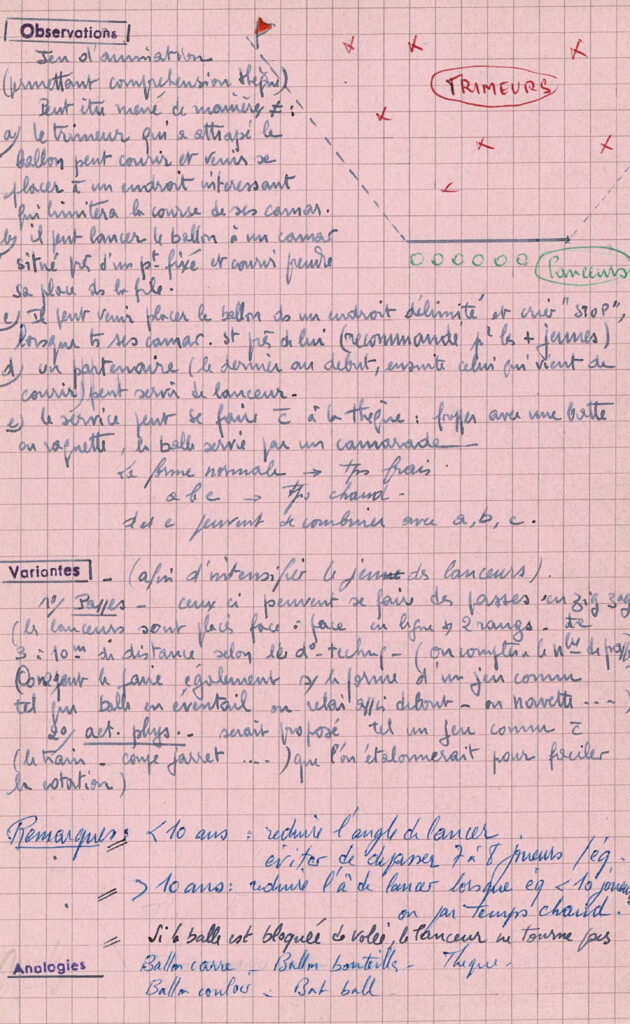 Observations
Jeu d'animation
(permettant compréhension thèque)
Peut être mené de manières ≠ :
a) le trimeur qui a attrapé le
ballon peut courir et venir se
placer à un endroit intéressant
qui limitera la course de ses camar.
b) il peut lancer le ballon à un camar
situé près d'un pt fixé et courir prendre
sa place ds la file.
c) Il peut venir placer le ballon ds un endroit délimité et crier "STOP",
lorsque ts ses camar. st près de lui (recommandé pr les + jeunes)
d) un partenaire (le dernier au début, ensuite celui qui vient de
courir) peut servir de lanceur.
e) le service peut se faire c̄ à la thèque : frapper avec une batte
ou raquette, la balle servie par un camarade
forme normale → tps frais.
a b c → tps chaud.
d et e peuvent se combiner avec a, b, c.
TRIMEURS
Lanceurs
Variantes - (afin d'intensifier le jeu des lanceurs).
1°/ Passes - ceux ci peuvent se faire des passes en zig zag
(les lanceurs sont placés face à face en ligne 2 rangs.
3 à 10m de distance selon le d° techniq - (on comptera le nbre de passes
(On peut le faire également forme d'un jeu connu
tel que balle en éventail ou relai assis debout - ou navette ....)
2°/ act. phys. - serait proposé tel un jeu connu c̄
(le train - coupe jarret ....) que l'on étalonnerait pour faciliter
la cotation)
Remarques : < 10 ans : réduire l'angle de lancer
éviter de dépasser 7 à 8 joueurs / éq.
> 10 ans : réduire l'â de lancer lorsque éq < 10 joueurs
ou par temps chaud.
Si la balle est bloquée de volée, le lanceur ne tourne pas
Analogies Ballon carré - Ballon bouteille - Thèque -
Ballon couloir - Bat ball